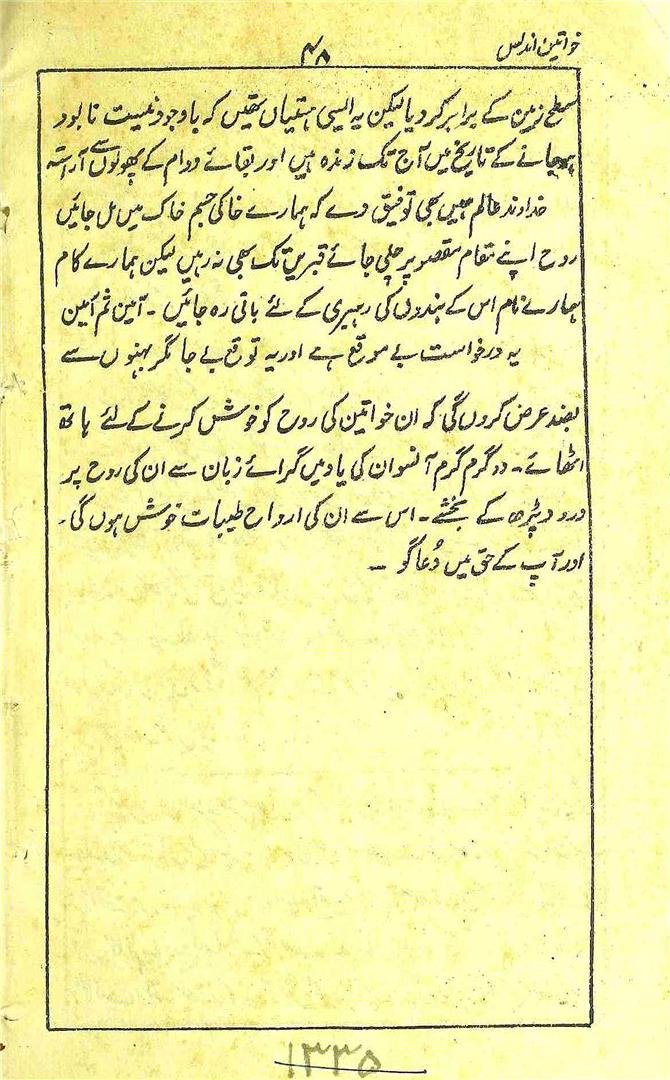 خواتین اندلس
۴۸
سطح زمین کے برابر کر دیا لیکن یہ ایسی ہستیاں تھیں کہ باوجود نیست نابود
ہو جانے کے تاریخ میں آج تک زندہ ہیں اور بقائے دوام کے پھولوں سے آراستہ
خداوند عالم ہمیں بھی توفیق دے کہ ہمارے خاکی جسم خاک میں مل جائیں
روح اپنے مقام مقصود پر چلی جائے قبریں تک بھی نہ رہیں لیکن ہمارے کام
ہمارے نام اس کے بندوں کی رہبری کے لئے باقی رہ جائیں ۔ آمین ثم آمین
یہ درخواست بے موقع ہے اور یہ توقع بے جا مگر بہنوں سے
بضد عرض کروں گی کہ ان خواتین کی روح کو خوش کرنے کے لئے ہاتھ
اٹھائے ۔ دو گرم گرم آنسو ان کی یاد میں گرائے زبان سے ان کی روح پر
درود پڑھ کے بخشے ۔ اس سے ان کی ارواح طیبات خوش ہوں گی ۔
اور آپ کے حق میں دُعا گو ۔
۱۳۳۵